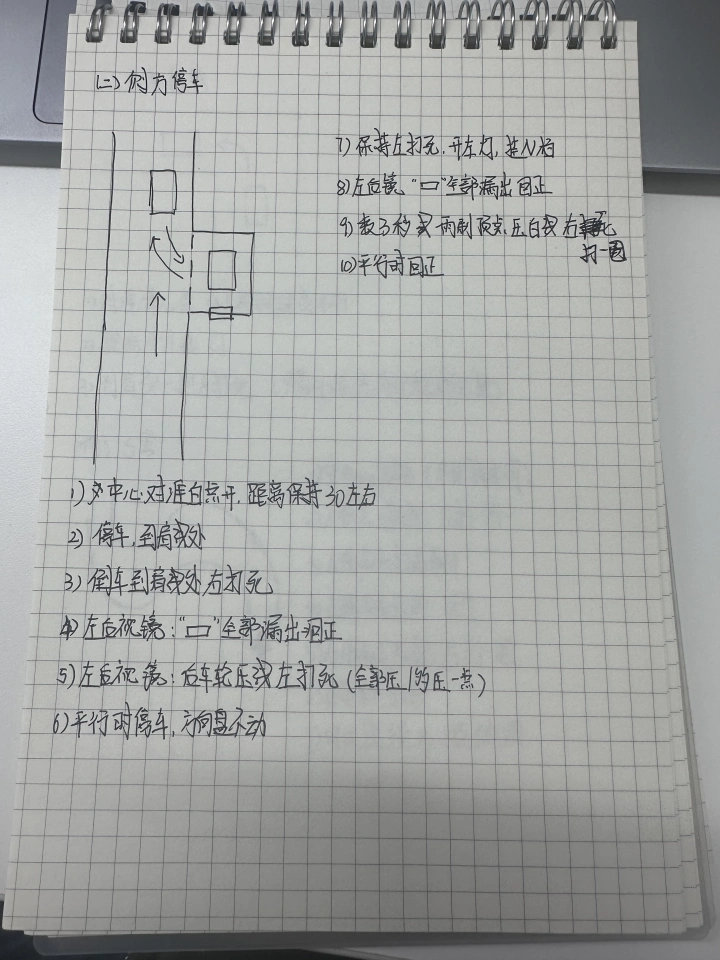 (二)侧方停车
1)中心对准白点开,距离保持30左右
2)停车,到肩线处
3)倒车到肩线处右打死
4)左后视镜:“▭”全部漏出回正
5)左后视镜:后车轮压线左打死(全部压/约压一点)
6)平行时停车,方向盘不动
7)保持左打死.开左灯,挂N档
8)左后镜“▭”全部漏出回正
9)数3秒或雨刮顶点压白线右
打一圈
10)平行时回正